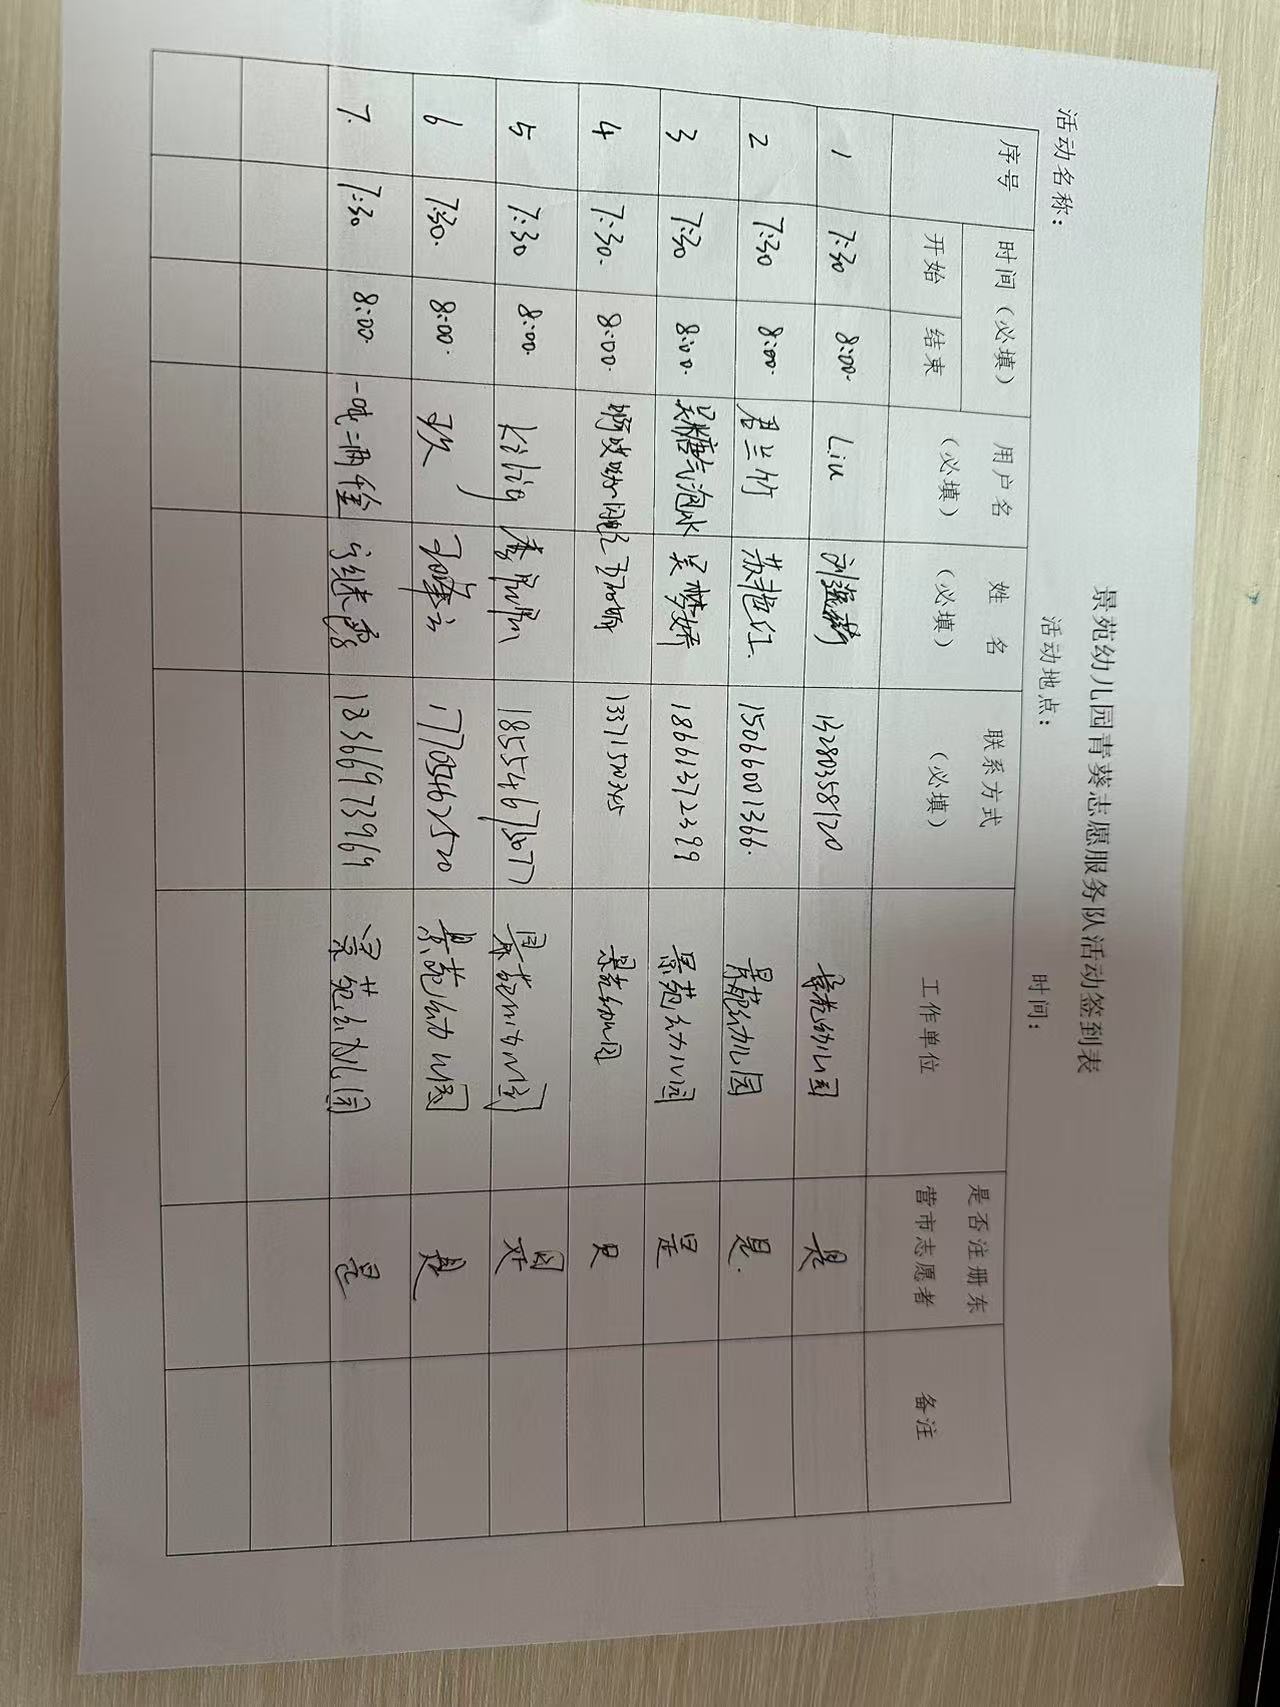 景苑幼儿园青葵志愿服务队活动签到表
活动名称： 活动地点： 时间：
序号 时间（必填） 用户名（必填） 姓名（必填） 联系方式（必填） 工作单位 是否注册东营市志愿者 备注
开始 结束
1 7:30 8:00. Liu 13280358120 景苑幼儿园 是
2 7:30 8:00. 君兰竹 苏艳红. 15066001366. 景苑幼儿园 是.
3 7:30 8:00. 吴糖气泡水 吴梦娇 18661372399 景苑幼儿园 是
4 7:30. 8:00. 13371570345 景苑幼儿园 是
5 7:30 8:00. 李 18554675077 景苑幼儿园 是
6 7:30. 8:00. 玖 17705467520 景苑幼儿园 是
7. 7:30 8:00. 一吨二两 18366973969 景苑幼儿园 是